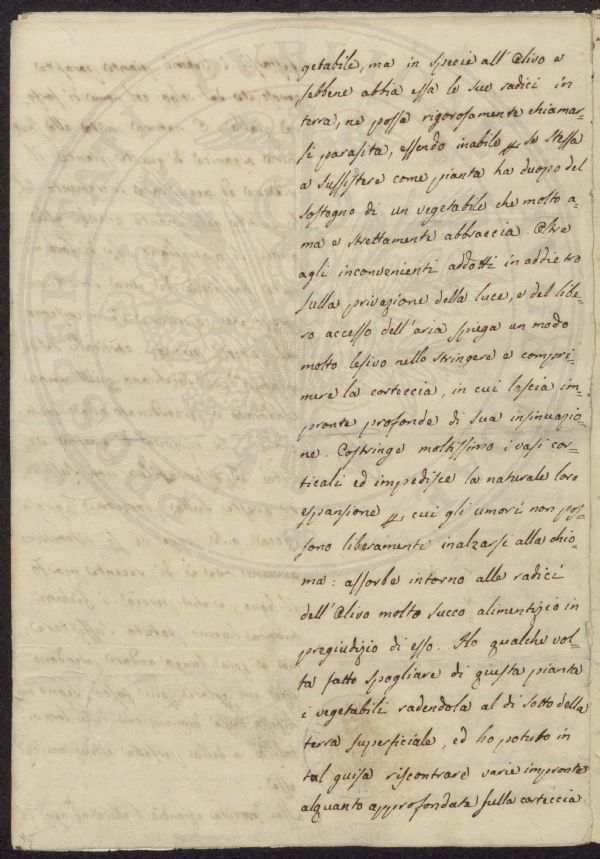 getabile, ma in specie all'Olivo e
sebbene abbia essa le sue radici in
terra, ne possa rigorosamente chiamar-
si parasita, essendo inabile p se stessa
a sussistere come pianta ha duopo del
sostegno di un vegetabile che molto a-
ma e strettamente abbraccia. Oltre
agli inconvenienti addotti in addietro
sulla privazione della luce, e del libe-
ro accesso dell'aria spiega un modo
molto lesivo nello stringere e compri-
mere la corteccia, in cui lascia im-
pronte profonde di sua insinuazio-
ne. Costringe moltissimo i vasi cor-
ticali ed impedisce la naturale loro
espansione p cui gli umori non pos-
sono liberamente inalzarsi alla chio-
ma: assorbe intorno alle radici
dell'Olivo molto succo alimentizio in
pregiudizio di esso. Ho qualche vol-
ta fatto spogliare di questa pianta
i vegetabili radendola al di sotto della
terra superficiale, ed ho potuto in
tal guisa riscontrare varie impronte
alquanto approfondate sulla corteccia